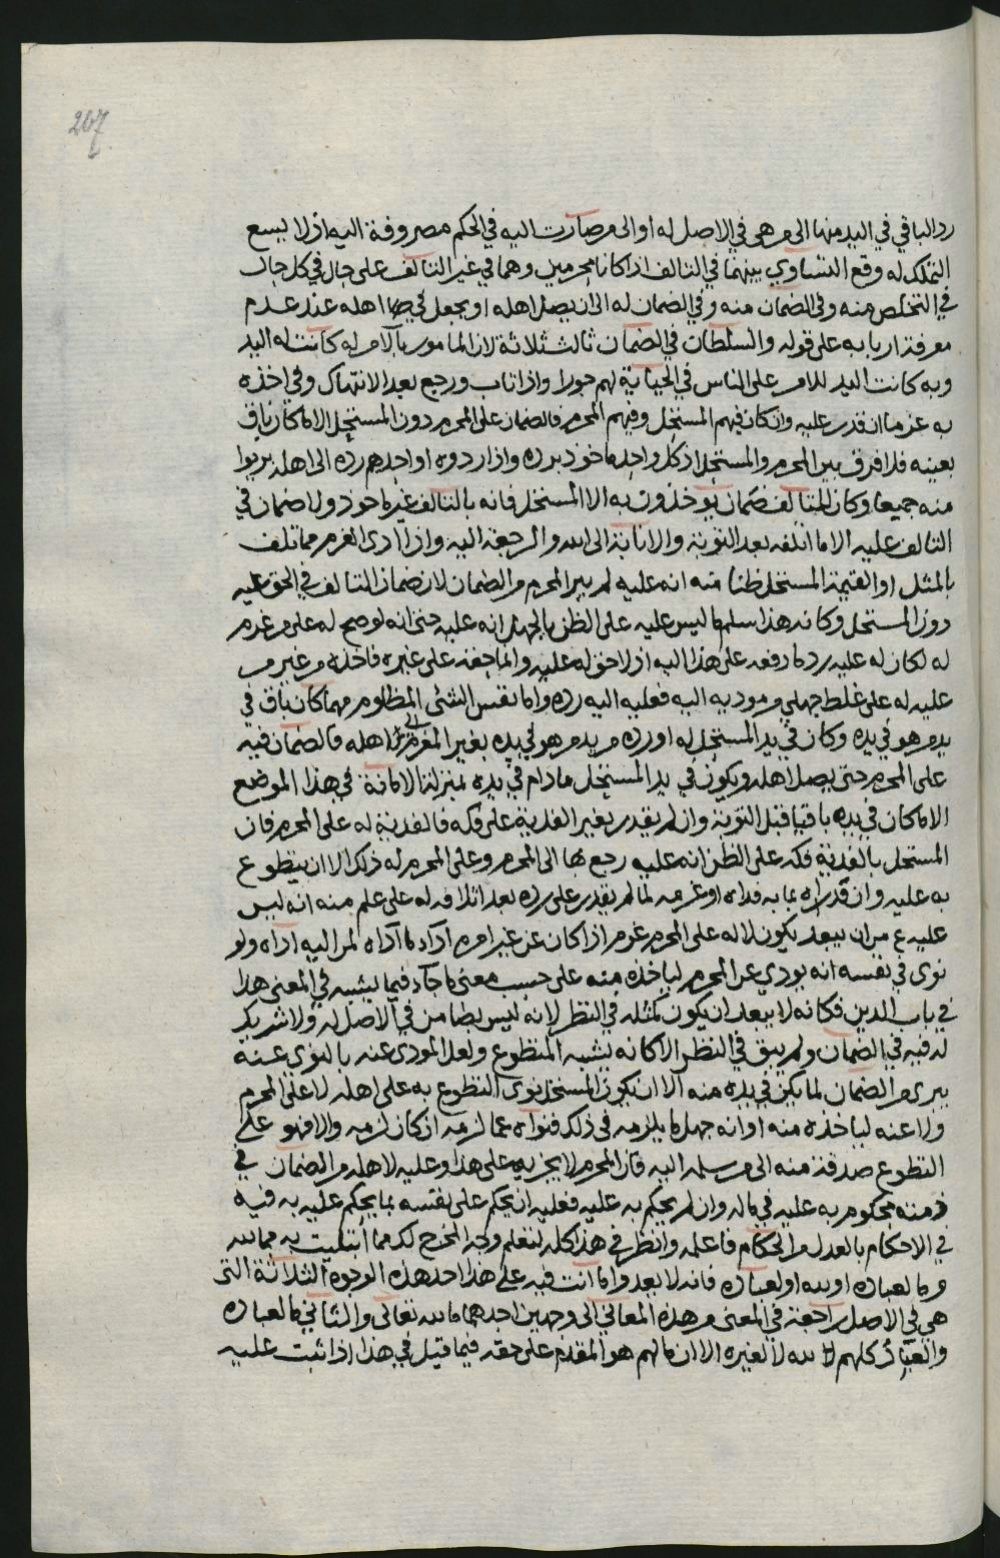 207
رد الباقي في اليد منها الى من هي في الاصل له او الى من صارت اليه في الحكم مصروفة اليه اذ لا يسع
التملك له وقع التساوي بينهما في التالف اذا كانا مجرمين وهما في غير التالف على حال في كل حال
في التخلص منه وفي الضمان منه وفي الضمان له الى ان يصل اهله او يجعل في اهله عند عدم
معرفة اربابه على قوله والسلطان في الضمان ثالث ثلاثة لان المامور بالآمر له كانت له اليد
وبه كانت اليد للامر على الناس في الجباية لهم جورا واذا تاب ورجع بعد الانتهاك وفي اخذه
به غرما ان قدر عليه وان كان فيهم المستحل وفيهم المحرم فالضمان على المحرم دون المستحل الا ما كان باق
بعينه فلا فرق بين المحرم والمستحل اذ كل واحد ماخوذ برده واذا ردوه او احدهم رده الى اهله بريوا
منه جميعا وكان للتالف ضمان يوخذون به الا المستحل فانه بالتالف غير ماخوذ ولا ضمان في
التالف عليه الا ما اتلفه بعد التوبة والانابة الى الله والرجعة اليه واذا ادى الغرم مما تلف
بالمثل او القيمة المستحل ظنا منه انه عليه لم يبر المحرم من الضمان لان ضمان التالف في الحق عليه
دون المستحل وكانه هذا سلم ما ليس عليه على الظن بالجهل انه عليه حتى انه لو صح له على من غرم
له لكان له عليه رد ما دفعه على هذا اليه اذ لا حق له عليه وانما حقه على غيره فاخذه من غير من
عليه له على غلط جهلي من موديه اليه فعليه اليه رده واما نفس الشئ المظلوم مهما كان باق في
يد من هو في يده وكان في يد المستحل له او رده من يد من هو في يده بغير المغرم الى اهله فالضمان فيه
على المحرم حتى يصل اهله ويكون في يد المستحل ما دام في يده بمنزلة الامانة في هذا الموضع
الا ما كان في يده باقيا قبل التوبة وان لم يقدر بغير الفدية على فكه فالفدية له على المحرم فان
المستحل بالفدية فكه على الظن انه عليه رجع بها الى المحرم وعلى المحرم له ذلك الا ان يتطوع
به عليه وان قدر اه بما به فداه او غرمه لما لم يقدر على رده بعد اتلافه له على علم منه انه ليس
عليه غرم ان يبعد يكون لا له على المحرم غرم اذا كان عن غير امره اداه ما اداه لمن اليه اداه ولو
نوى في نفسه انه يودي عن المحرم لياخذه منه على حسب معنى ما جاء فيما يشبه في المعنى هذا
في باب الدين فكانه لا يبعد ان يكون كمثله في النظر لانه ليس بضامن في الاصل له ولا شريك
له فيه في الضمان ولم يبق في النظر الا كانه يشبه المتطوع ولعل المودى عنه بالنوى عنه
يبرى من الضمان لما يكن في يده منه الا ان يكون المستحل نوى التطوع به على اهله لا عن المحرم
ولا عنه لياخذه منه او انه جهل ما يلزمه في ذلك فنواه عما لزمه ان كان لزمه والا فهو على
التطوع صدقة منه الى من سلمه اليه فان المحرم لا يجزيه على هذا وعليه لاهله من الضمان في
ذمته محكوم به عليه في ماله وان لم يحكم به عليه فعليه ان يحكم على نفسه بما يحكم عليه به فيه
في الاحكام بالعدل من الحكام فاعلمه وانظر في هذا كله لتعلم وجه المخرج لك مما ابتليت به مما لله
وما لعباده او لله او لعباده فانه لا يعد واما انت فيه على هذا احد هذه الوجوه الثلاثة التى
هي في الاصل راجعة في المعنى من هذه المعاني الى وجهين احدهما ما لله تعالى والثاني ما لعباده
والعباد كلهم لله لا لغيره الا ان ما لهم هو المقدم على حقه فيما قيل في هذا اذا ثبت عليه